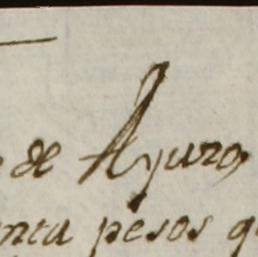 de Ayuro
nta pesos q